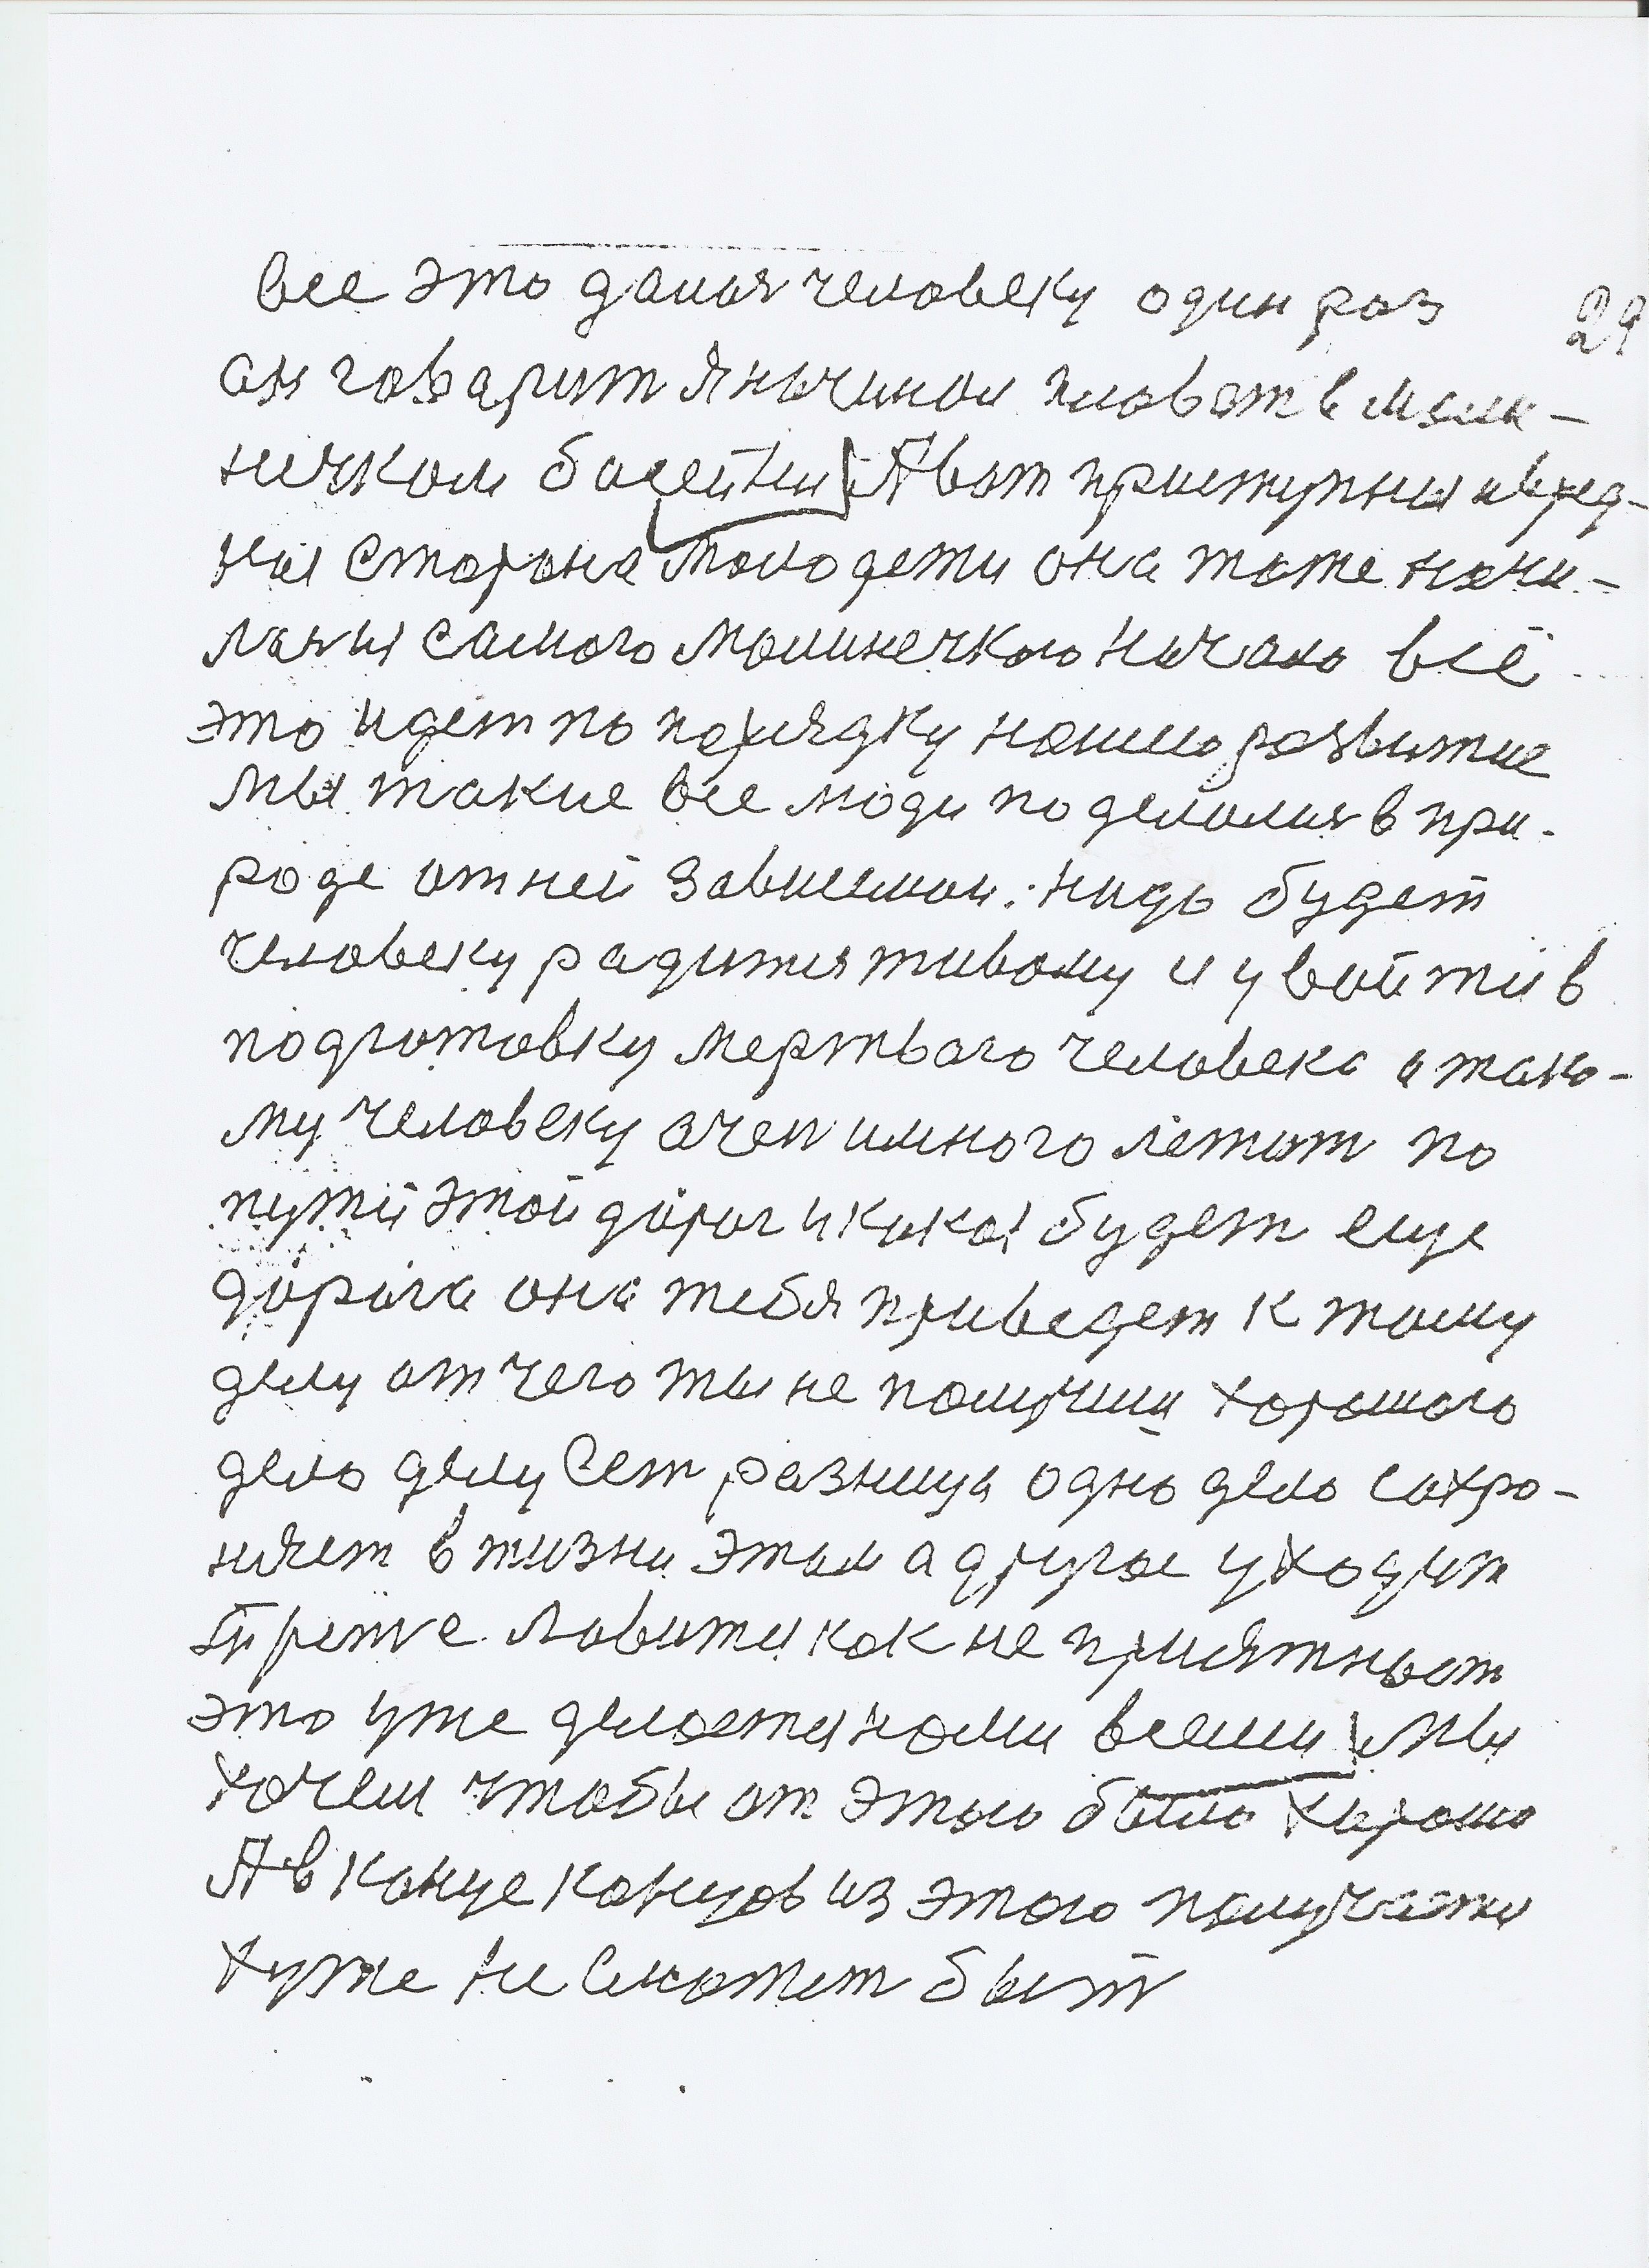 все это далоя человеку один раз
29
он говарит я ничинал плават в мали-
ничком басейни А вот приступная и вред-
ная старана молодети она тоже начи-
лася самого малинечкого ничало всё
это идет по порядку нашего развитие
мы такие все люди поделалия в при-
роде от ней зависимаи. Надо будет
человеку радится живому и увойти в
подготовку мертвого человека а тако-
му человеку очен и много лежит по
пути этой дорог и какая будет еще
дорога она тебя приведет к тому
делу от чего ты не получиш хорошого
дело делу Сет разница одно дело сохро-
няет в жизни этом а другое уходит
третие ловится как не приятност
это уже делается нами всеми Мы
хочем чтобы от этого было харошо
А в конце концов из этого получается
хуже не Сможет быт